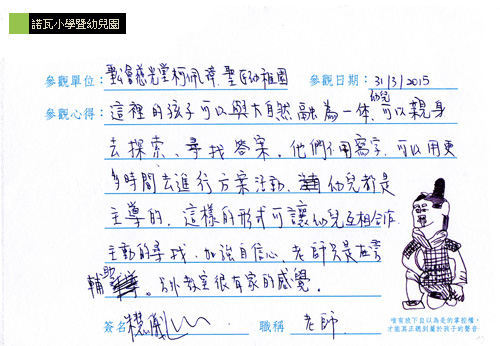 諾瓦小學暨幼兒園
參觀單位： 聖公會慈光堂柯佩璋 聖匠幼稚園 參觀日期： 31/3/2015
參觀心得： 這裡的孩子可以與大自然融為一体，幼兒可以親身
去探索、尋找答案。他們不用寫字，可以用更
多時間去進行方案活動，幼兒都是
主導的，這樣的形式可讓幼兒互相合作
主動的尋找，加強自信心，老師只是在旁
輔助。另外教室很有家的感覺。
簽名 職稱 老師
唯有放下自以為是的掌控權，
才能真正聽到屬於孩子的聲音